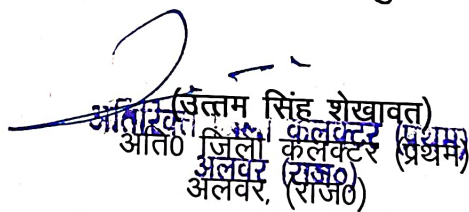 (उत्तम सिंह शेखावत)
अतिरिक्त जिला कलक्टर (प्रथम)
अति0 जिला कलक्टर (प्रथम)
अलवर (राज0)
अलवर, (राज0)